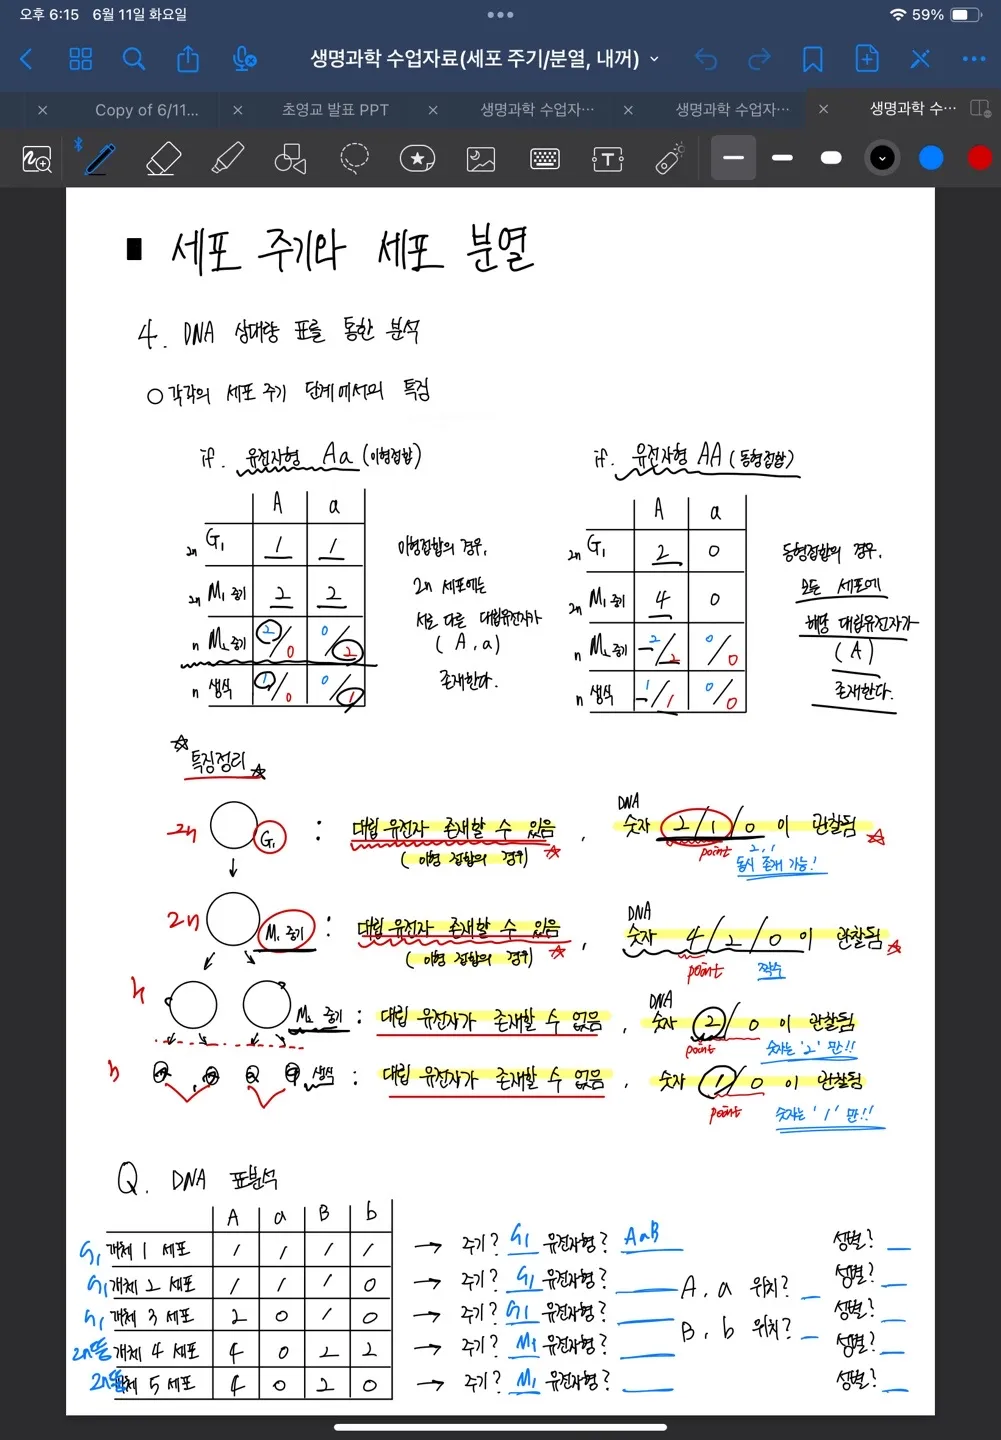 오후 6:15 6월 11일 화요일
59%
생명과학 수업자료(세포 주기/분열, 내꺼)
Copy of 6/11...
초영교 발표 PPT
생명과학 수업자...
생명과학 수업자...
생명과학 수...
■ 세포 주기와 세포 분열
4. DNA 상대량 표를 통한 분석
○ 각각의 세포 주기 단계에서의 특징
if. 유전자형 Aa (이형접합)
A a
2n G₁ 1 1
2n M₁ 중기 2 2
n M₂ 중기 2/0 0/2
n 생식 1/0 0/1
이형접합의 경우,
2n 세포에는
서로 다른 대립유전자가
(A, a)
존재한다.
if. 유전자형 AA (동형접합)
A a
2n G₁ 2 0
2n M₁ 중기 4 0
n M₂ 중기 2/2 0/0
n 생식 1/1 0/0
동형접합의 경우,
모든 세포에
해당 대립유전자가
(A)
존재한다.
☆특징정리☆
2n G₁ : 대립 유전자 존재할 수 있음, DNA 숫자 2/1/0 이 관찰됨
(이형 접합의 경우)
point
2, 1
동시 존재 가능!
2n M₁ 중기 : 대립 유전자 존재할 수 있음, DNA 숫자 4/2/0 이 관찰됨
(이형 접합의 경우)
point 짝수
n M₂ 중기 : 대립 유전자가 존재할 수 없음, DNA 숫자 2/0 이 관찰됨
point 숫자는 '2' 만!!
n 생식 : 대립 유전자가 존재할 수 없음, 숫자 1/0 이 관찰됨
point 숫자는 '1' 만!!
Q. DNA 표분석
A a B b
G₁ 개체 1 세포 1 1 1 1 → 주기? G₁ 유전자형? AaB 성별?
G₁ 개체 2 세포 1 1 1 0 → 주기? G₁ 유전자형? A, a 위치? 성별?
G₁ 개체 3 세포 2 0 1 0 → 주기? G₁ 유전자형? B, b 위치? 성별?
개체 4 세포 4 0 2 2 → 주기? M₁ 유전자형? 성별?
5 세포 4 0 2 0 → 주기? M₁ 유전자형? 성별?